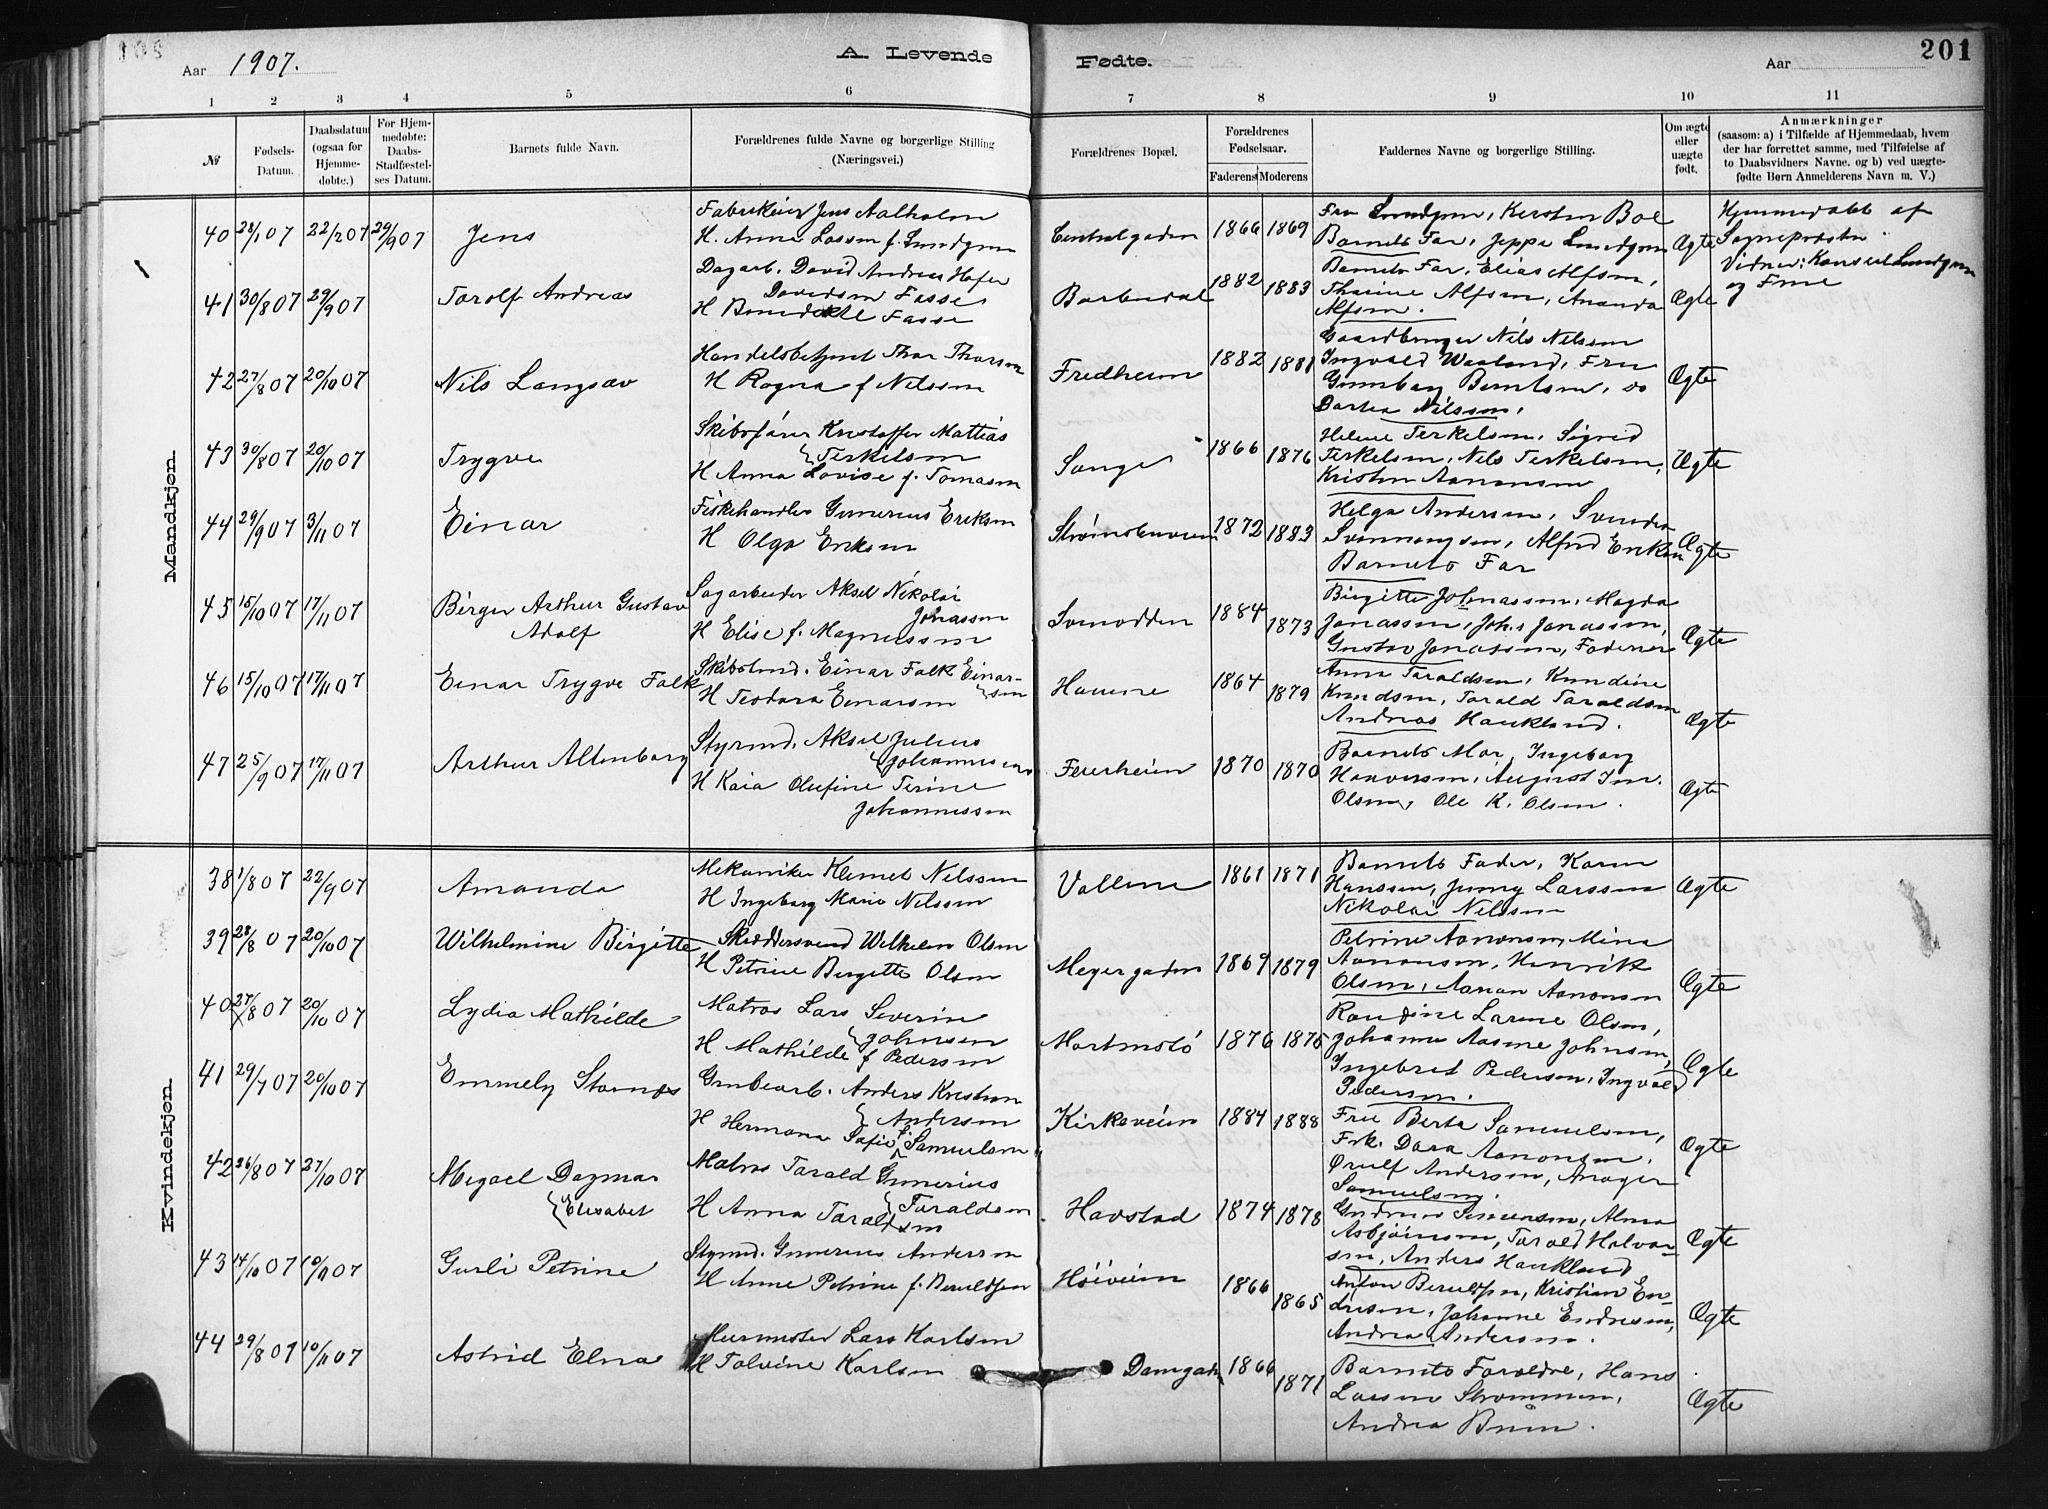 Aar 1907.
A. Levende
Fødte.
Aar
201
1 2 3 4 5 6 7 8 9 10 11
№
Fødsels-Datum.
Daabsdatum (ogsaa for Hjemme-døbte.)
For Hjem-medøbte: Daabs-Stadfæstel-ses Datum.
Barnets fulde Navn.
Forældrenes fulde Navne og borgerlige Stilling (Næringsvei.)
Forældrenes Bopæl.
Forældrenes Fødselsaar.
Faderens Moderens
Faddernes Navne og borgerlige Stilling.
Om ægte eller uægte født.
Anmærkninger
(saasom: a) i Tilfælde af Hjemmedaab, hvem
der har forrettet samme, med Tilføielse af
to Daabsvidners Navne. og b) ved uægte-
fødte Børn Anmelderens Navn m. V.)
Mandkjøn.
40 28/1 07 22/2 07 29/9 07 Jens
Fabrikeier Jens Aalholm
H. Anna Lassen f. Lundgren
Centralgaden 1866 1869
Fru Lundgren, Kirsten Boe
Barnets Far, Jeppe Lundgren
Ægte
Hjemmedøbt af
Sognepresten.
Vidner: Konsul Lundgren
og Frue
41 30/8 07 29/9 07 Torolf Andreas
Dagarb. David Andreas Hofer
Davidsen Fasse
H Benedikte Fasse
Barbudal 1882 1883
Barnets Far, Elias Alfsen,
Thrine Alfsen, Amanda
Alfsen.
Ægte
42 27/8 07 20/10 07 Nils Langsav
Handelsbetjent Thor Thorsen
H Ragna f Nilssen
Fredheim 1882 1881
Gaardbruger Nils Nilssen
Ingvald Waaland, Fru
Gunborg Berntsen, og
Dortea Nilssen,
Ægte
43 30/8 07 20/10 07 Trygve
Skibsfører Kristoffer Mattias
Terkelsen
H Anna Lovise f. Tomasen
Songe 1866 1876
Helene Terkelsen, Sigrid
Terkelsen, Nils Terkelsen,
Kristen Aanonsen
Ægte
44 29/9 07 3/11 07 Einar
Fiskehandler Gunerius Eriksen
H Olga Eriksen
Strømsbuveien 1872 1883
Helga Andersen, Svendea
Svenningsen, Alfred Eriksen
Barnets Far
Ægte
45 15/10 07 17/11 07 Birger Arthur Gustav
Adolf
Sagarbeider Aksel Nikolai
Jonassen
H Elise f. Magnussen
Svenodden 1884 1873
Birgitte Johnassen, Magda
Jonassen, Johs Jonassen,
Gustav Jonassen, Faderen
Ægte
46 15/10 07 17/11 07 Einar Trygve Falk
Skibstmd. Einar Falk Einar-
sen
H Teodora Einarsen
Havene 1864 1879
Anna Taraldsen, Kundine
Knudsen, Tarald Taraldsen
Andreas Haukland.
Ægte
47 25/9 07 17/11 07 Arthur Altenborg
Styrmd. Aksel Julius
Johannessen
H Kaia Olufine Terine
Johannessen
Feierheien 1870 1870
Barnets Mor, Ingeborg
Halvorsen, August Im.
Olsen, Ole K. Olsen.
Ægte
Kvindekjøn.
38 1/8 07 22/9 07 Amanda
Mekaniker Klemet Nilssen
H Ingeborg Marie Nilssen
Vollene 1861 1871
Barnets Fader, Karen
Hanssen, Jenny Larssen
Nikolai Nilssen
Ægte
39 28/8 07 20/10 07 Wilhelmine Birgitte
Skræddersvend Wilhelm Olsen
H Petrine Birgitte Olsen
Meyergaden 1869 1879
Petrine Aanonsen, Mina
Aanonsen, Henrik
Olsen, Aanon Aanonsen
Ægte
40 27/8 07 20/10 07 Lydia Mathilde
Matros Lars Severin
Johnsen
H Mathilde f Pedersen
Mortensbø 1876 1875
Randine Larine Olsen,
Johanne Aasine Johnsen,
Ingebret Pedersen, Ingvald
Pedersen.
Ægte
41 29/7 07 20/10 07 Emmely Stornes
Grubearb. Anders Kristian
Andersen
H Hermana Sofie f. Samuelsen
Kirkeveien 1884 1888
Fru Berta Samuelsen,
Frk. Dora Aanonsen,
Ørulf Andersen, Anager
Samuelsen.
Ægte
42 26/8 07 27/10 07 Migael Dagmar
Elisabet
Matros Tarald Gunerius
Taraldsen
H Anna Taraldsen
Havstad 1874 1878
Gudrun Simensen, Alma
Asbjørnsen, Tarald Halvor-
sen, Anders Haukland
Ægte
43 14/10 07 10/11 07 Gusli Petrine
Styrmd. Gunerius Andersen
H Anne Petrine f. Berulfsen
Høiveien 1866 1865
Anton Berulfsen, Kristian En-
dresen, Johanne Endresen,
Andrea Andersen.
Ægte
44 29/8 07 10/11 07 Astrid Elna
Murmester Lars Karlsen
H Tolvine Karlsen
Damgaden 1866 1871
Barnets Foreldre, Hans
Larsen Strømmen,
Andrea Bruun.
Ægte